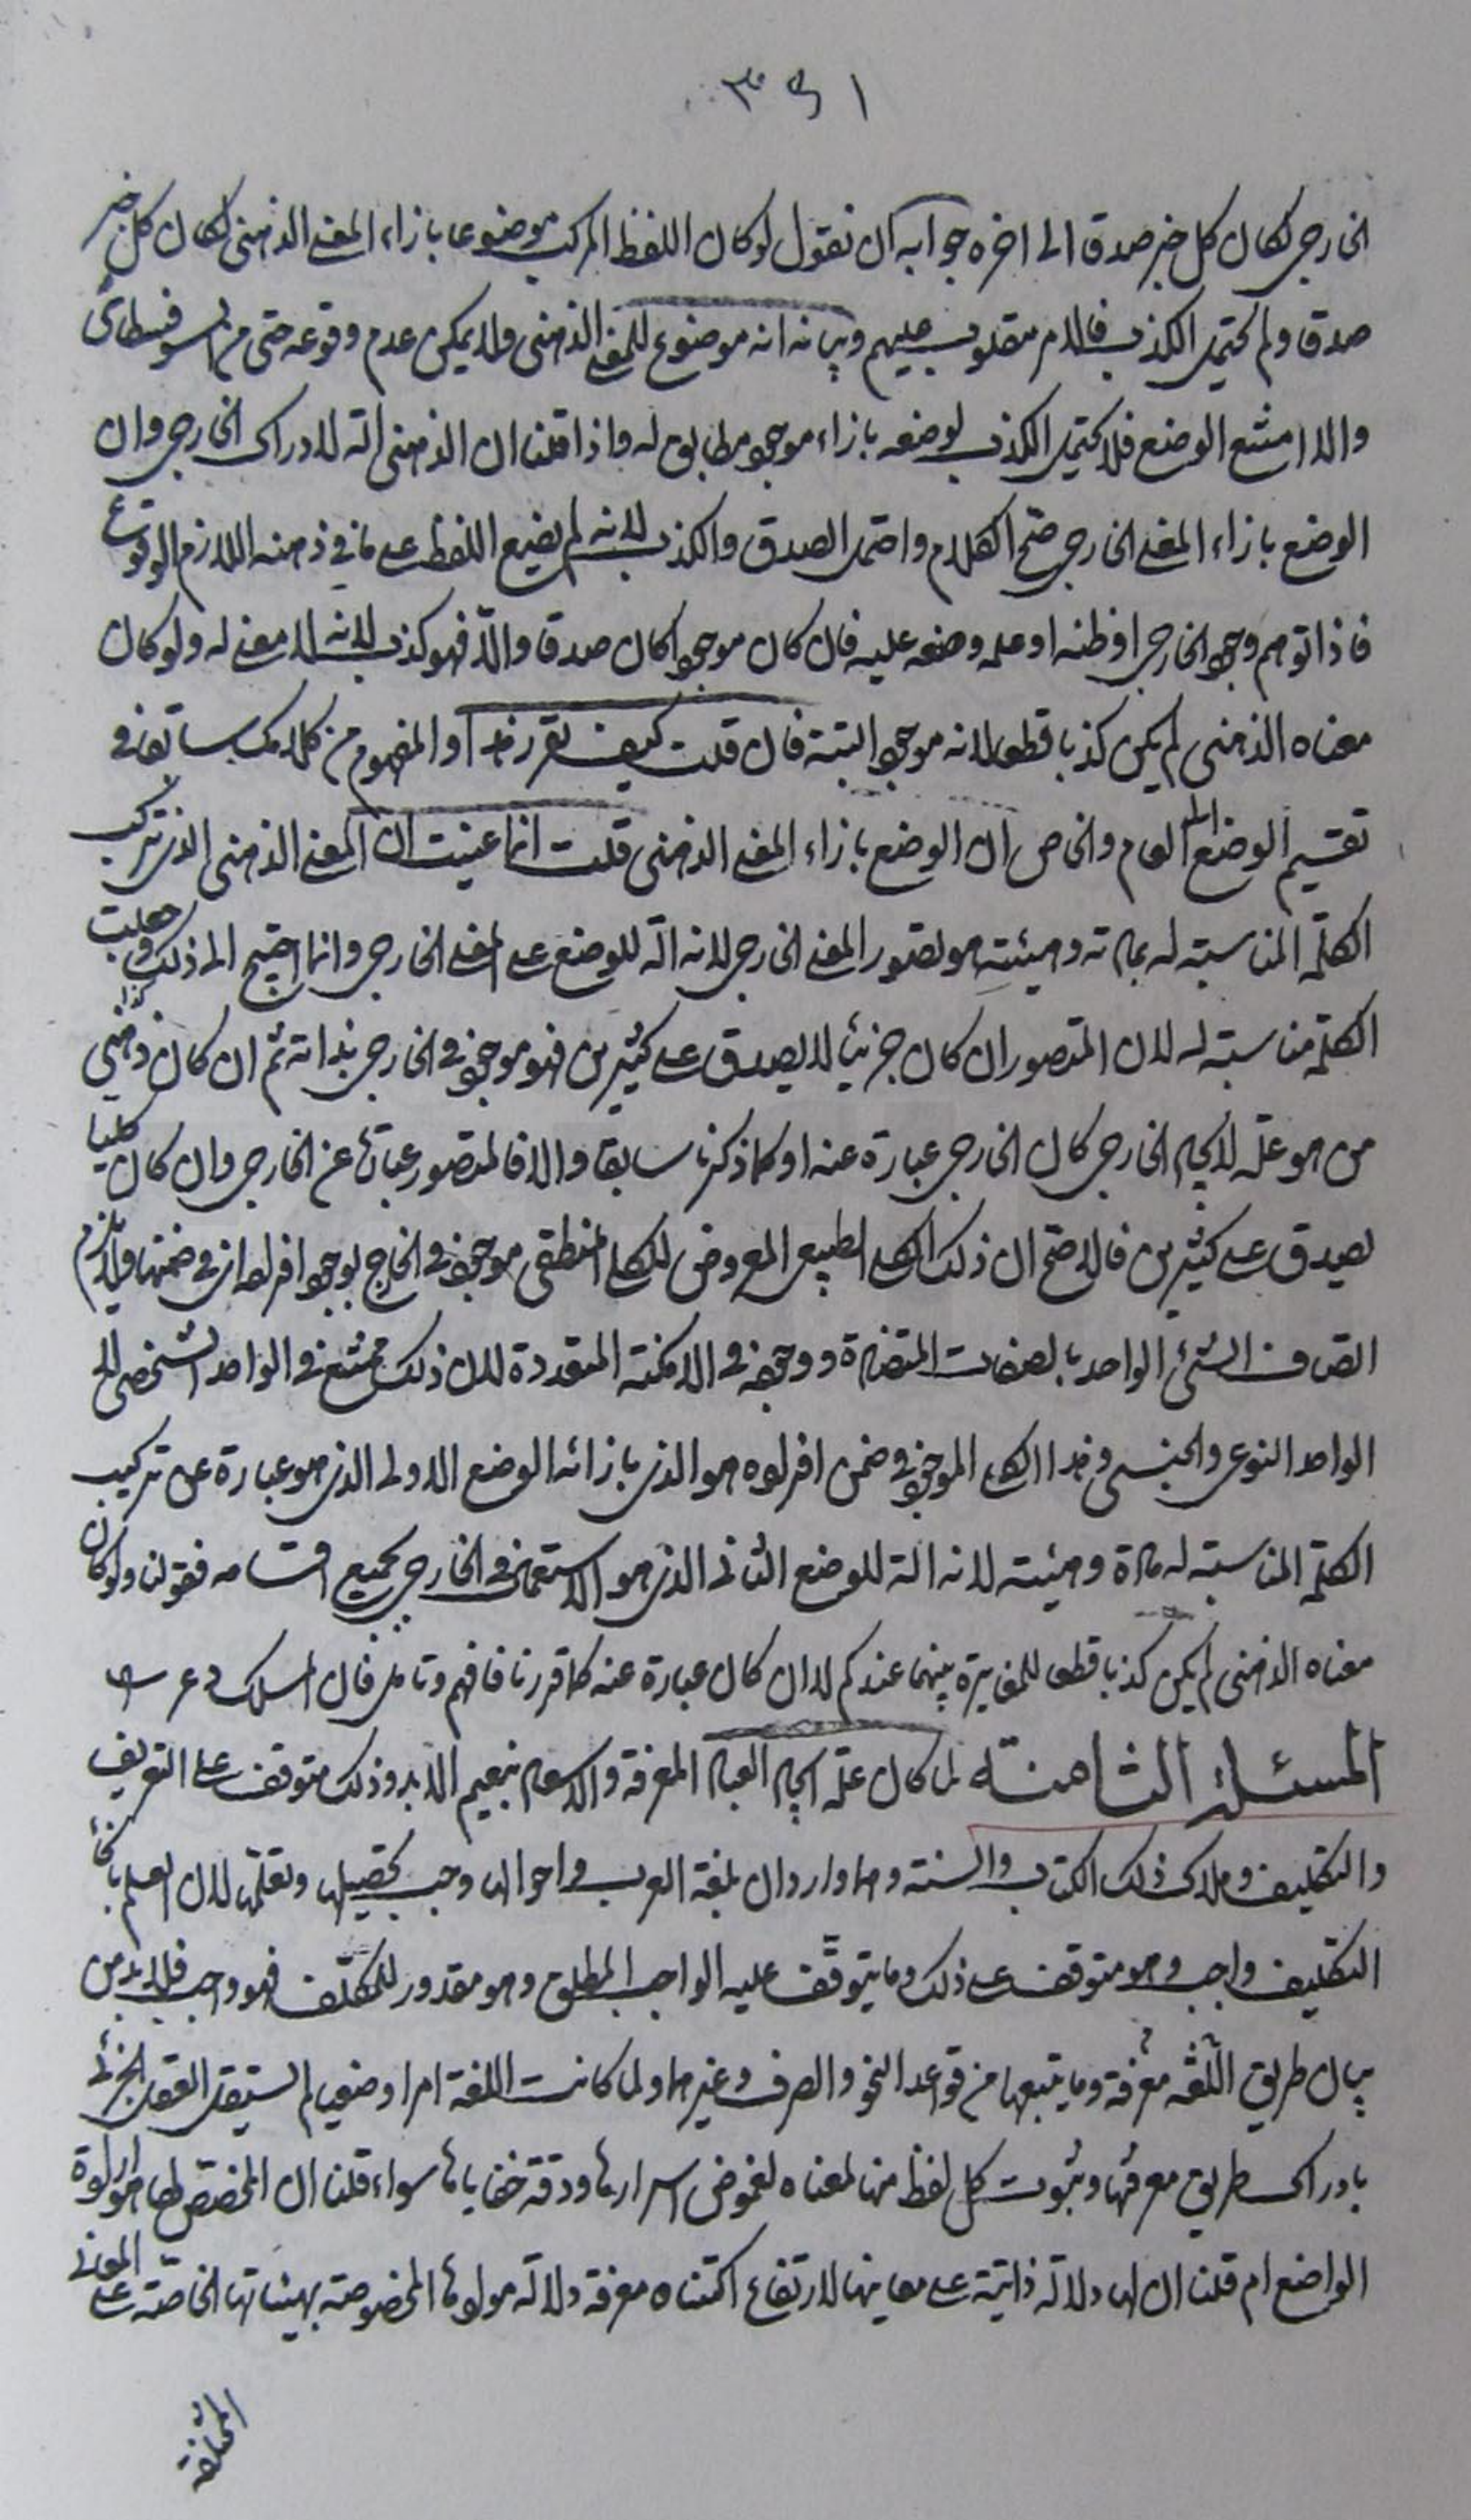 ٣٥١
الخارجي لكان كل خبر صدقا الى اخره جوابه ان نقول لو كان اللفظ المركب موضوعا بازاء المعنى الذهني لكان كل خبر
صدقا ولم يحتمل الكذب فالامر مقلوب عليهم وبيانه انه موضوع للمعنى الذهني ولا يمكن عدم وقوعه حتى من السوفسطائي
والا امتنع الوضع فلا يحتمل الكذب لوضعه بازاء موجود مطابق له واذا قلنا ان الذهني آلة لادراك الخارجي وان
الوضع بازاء المعنى الخارجي صح الكلام واحتمل الصدق والكذب لانه لم يضع اللفظ على ما في ذهنه اللازم الوقوع
فاذا توهم وجود الخارجي او ظنه او علمه وضعه عليه فان كان موجودا كان صدقا والا فهو كذب لانه لا معنى له ولو كان
معناه الذهني لم يكن كذبا قطعا لانه موجود البتة فان قلت كيف تقرر هذا والمفهوم من كلامك سابقا في
تقسيم الوضع الى العام والخاص ان الوضع بازاء المعنى الذهني قلت انما عنيت ان المعنى الذهني الذي تركب
الكلمة المناسبة له بمادته وهيئته هو تصور المعنى الخارجي لانه آلة للوضع على المعنى الخارجي وانما احتيج الى ذلك وجعلت
الكلمة مناسبة له لان المتصور ان كان جزئيا لا يصدق على كثيرين فهو موجود في الخارج بذاته ثم ان كان في ذهني
من هو علة لايجاد الخارجي كان الخارجي عبارة عنه او كما ذكرنا سابقا والا فالمتصور عبارة عن الخارجي وان كان كليا
يصدق على كثيرين فالاصح ان ذلك الكلي الطبيعي المعروض للكلي المنطقي موجود في الخارج بوجود افراده اي في ضمنها ولا يلزم
اتصاف الشيء الواحد بالصفات المتضادة ووجوده في الامكنة المتعددة لان ذلك ممتنع في الواحد الشخصي لا
الواحد النوعي والجنسي وهذا الكلي الموجود في ضمن افراده هو الذي بازائه الوضع الاولي الذي هو عبارة عن تركيب
الكلمة المناسبة له مادة وهيئة لانه آلة للوضع الثاني الذي هو الاستعمال في الخارجي بجميع اقسامه فقولنا ولو كان
معناه الذهني لم يكن كذبا قطعا للمغايرة بينهما عندكم لا ان كان عبارة عنه كما قررنا فافهم وتامل فان المسلك دعر
المسئلة الثامنة لما كان علة ايجاد العباد المعرفة والاسعاد بنعيم الابد وذلك متوقف على التعريف
والتكليف وملاك ذلك الكتاب والسنة وهما واردان بلغة العرب واحوالها وجب تحصيلها وتعلمها لان العلم بانحاء
التكليف واجب وهو متوقف على ذلك وما يتوقف عليه الواجب المطلق وهو مقدور للمكلف فهو واجب فلا بد من
بيان طريق معرفة اللغة وما يتبعها من قواعد النحو والصرف وغيرهما ولما كانت اللغة امرا وضعيا لم يستقل العقل الجزئي
بادراك طريق معرفتها وثبوت كل لفظ منها لمعناه لغموض اسرارها ودقة خفاياها سواء قلنا ان المخصص لها هو ارادة
الواضع ام قلنا ان لها دلالة ذاتية على معانيها لارتفاع اكتناه معرفة دلالة موادها المخصوصة بهيئاتها الخاصة على المعاني
المختلفة